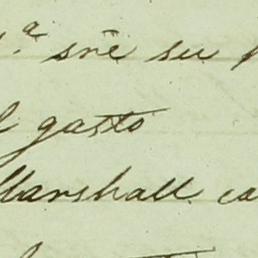 sñe su
gasto
Marshall ca